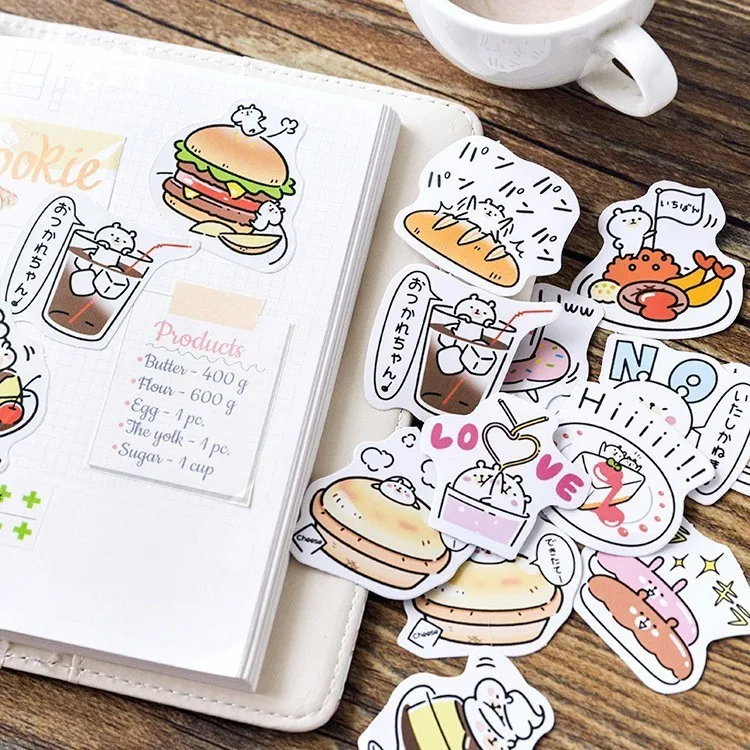 ookie
おつかれちゃん♪
Products
•Butter - 400 g
•Flour - 600 g
•Egg - 1 pc.
•The yolk - 1 pc.
•Sugar - 1 cup
パン パン パン
パン パン パン
いちばん
おつかれちゃん♪
ww
NO
いたしかねま
Hiiiii!!
LOVE
Cheese
できたてー
Cheese
キラ